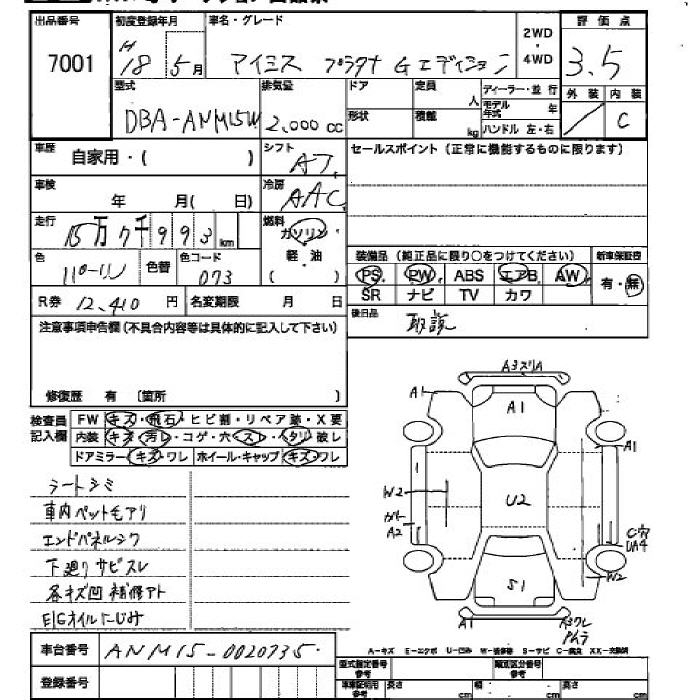 出品番号 初度登録年月 車名・グレード 2WD・4WD 評価点
7001 H18 5月 アイシス プラタナ Gエディション 3.5
型式 排気量 ドア 定員 人 ディーラー・並行 外装 内装
DBA-ANM15W 2,000cc 形状 積載 kg モデル年式 年 ハンドル 左・右 C
車歴 自家用・( ) シフト AT セールスポイント(正常に機能するものに限ります)
車検 年 月( 日) 冷房 AAC
走行 15万7千993km 燃料 ガソリン 軽・油 ( )
色 パールツン 色替 色コード 073 装備品(純正品に限り○をつけてください) 新車保証書
PS PW ABS エアB AW 有・無
R券 12,410円 名変期限 月 日 SR ナビ TV カワ
注意事項申告欄(不具合内容等は具体的に記入して下さい) 後日品 取説
修復歴 有 〔箇所 〕
検査員記入欄 FW キズ・飛石・ヒビ割・リペア跡・X要
内装 キズ・汚レ・コゲ・穴・スレ・ヘタリ・破レ
ドアミラー キズ・ワレ ホイール・キャップ キズ・ワレ
シートシミ
車内ペット毛アリ
エンドパネルシワ
下廻りサビスレ
各キズ凹補修アト
E/Gオイルにじみ
A3スリA
A1 A1
A1
W2 U2
A2 C穴
UA4
W2
S1
A1 A3ワレ
A-キズ E-エクボ U-凹み W-補修跡 S-サビ C-腐食 XX-交換済
車台番号 ANM15-0020735
登録番号 型式指定番号 参考 類別区分番号 参考
車庫証明用 参考 長さ cm 幅 cm 高さ cm